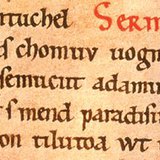 tuchel Serm
s chomuv uogm
semucut adamu
s mend paradisu
on tilutoa wt